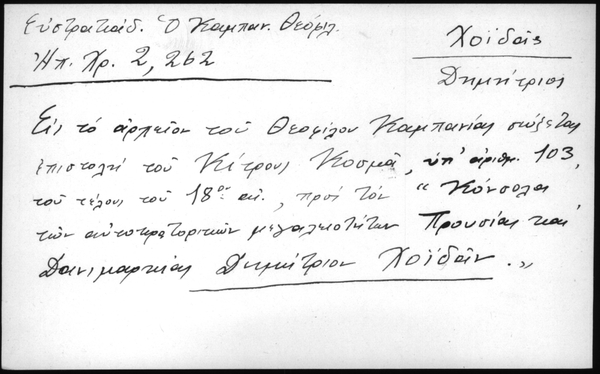 Εὐστρατιάδ. Ὁ Καμπαν. Θεόφιλ.
Ἠπ. Χρ. 2, 262
Χοϊδᾶς
Δημήτριος
Εἰς τό ἀρχεῖον τοῦ Θεοφίλου Καμπανίας σώζεται
ἐπιστολή τοῦ Κίτρους Κοσμᾶ, ὑπ' ἀριθμ. 103,
τοῦ τέλους τοῦ 18ου αἰ., πρός τόν "Κόνσολα
τῶν αὐτοκρατορικῶν μεγαλειοτήτων Προυσίας καί
Δανιμαρκίας Δημήτριον Χοϊδᾶν."